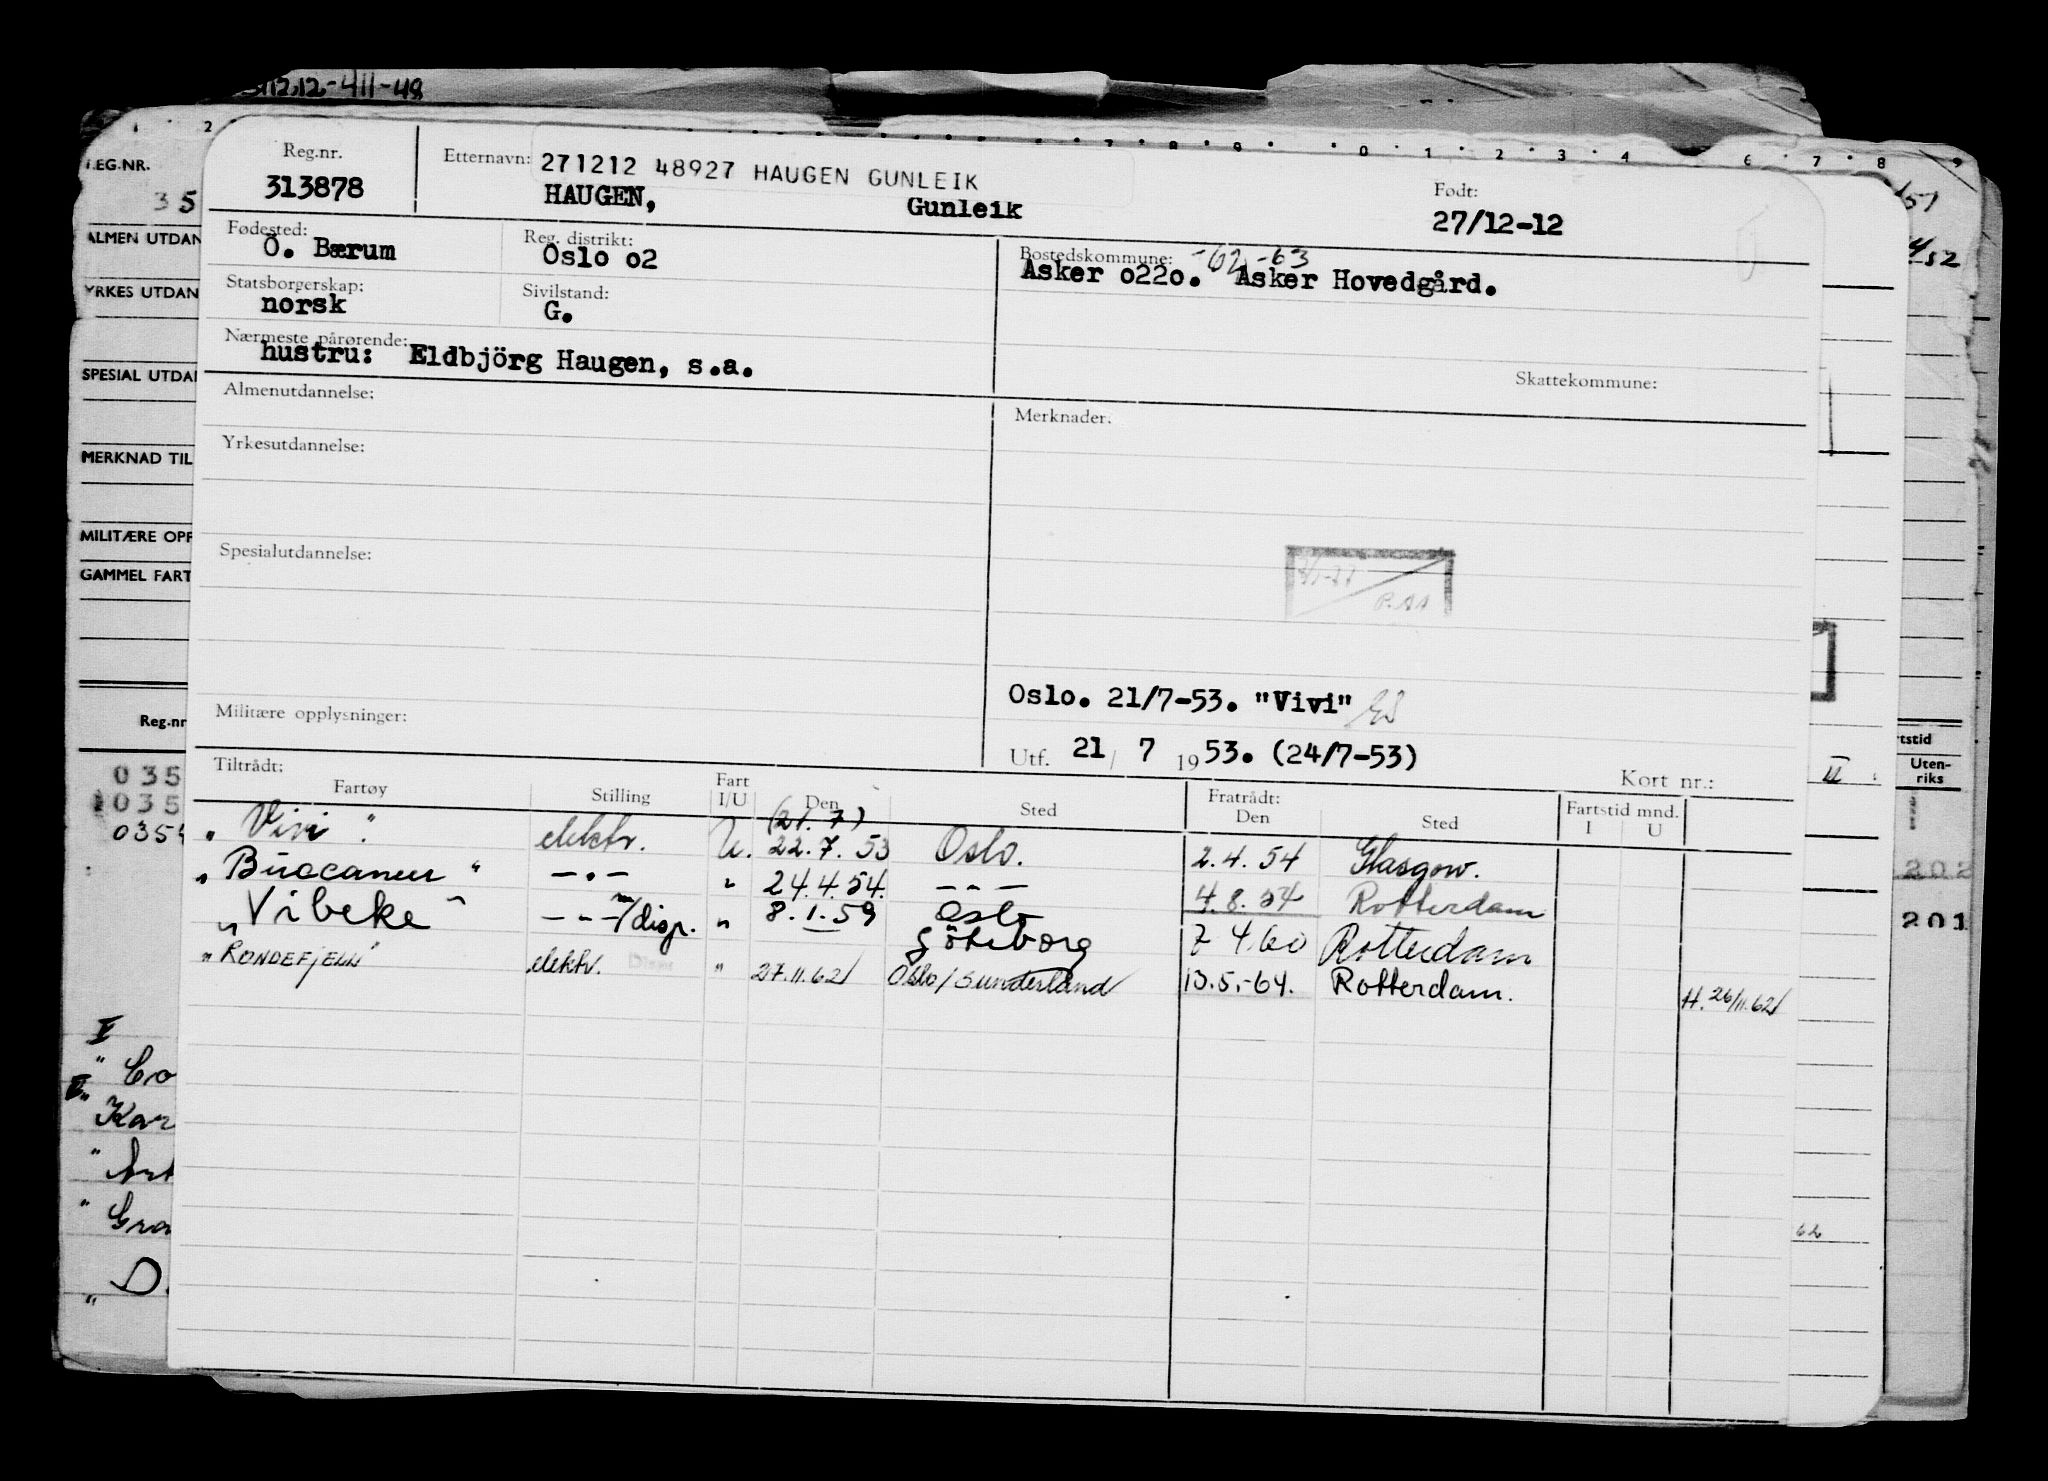 3112.12-411-48
1 2 7 8 9 0 1 2 3 4 6 7 8 9
REG.NR.
35
ALMEN UTDAN
YRKES UTDAN
SPESIAL UTDAN
MERKNAD TIL
MILITÆRE OPP
GAMMEL FART
Reg.nr
035
035
0354
Reg.nr. 313878
Etternavn: 271212 48927 HAUGEN GUNLEIK
HAUGEN, Gunleik
Født: 27/12-12
Fødested: Ö. Bærum
Reg. distrikt: Oslo o2
Bostedskommune: -62 -63
Asker o22o. Asker Hovedgård.
Statsborgerskap: norsk
Sivilstand: G.
Nærmeste pårørende:
hustru: Eldbjörg Haugen, s.a.
Skattekommune:
Almenutdannelse:
Merknader:
Yrkesutdannelse:
Spesialutdannelse:
Oslo. 21/7-53. "Vivi"
Militære opplysninger:
Utf. 21/ 7 1953. (24/7-53)
Kort nr.:
Tiltrådt:
Fartøy Stilling Fart I/U Den Sted Fratrådt: Den Sted Fartstid mnd. I U
(21.7)
"Vivi" elektr. U. 22.7.53 Oslo. 2.4.54 Glasgow.
"Buccaneer" —.— " 24.4.54. — - — 4.8.54 Rotterdam
"Vibeke" — - — m/disp. " 8.1.59 Oslo
Göteborg 7.4.60 Rotterdam
"RONDEFJELL" elektr. " 27.11.62 Oslo/Sunderland 13.5.-64. Rotterdam. H. 26/11.62
V
" Co
" Kar
" Art
" Gra
D.
"
/51
4/52
II
rtstid
Uten-
riks
202
201
62